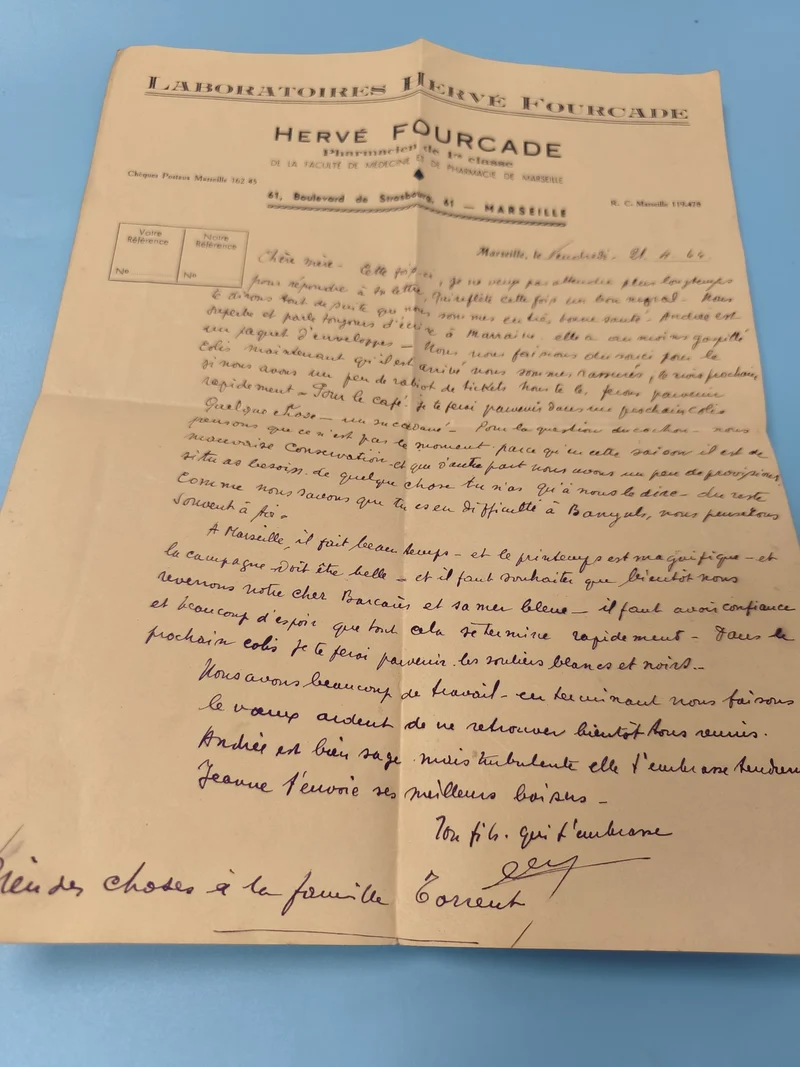 LABORATOIRES HERVÉ FOURCADE
HERVÉ FOURCADE
Pharmacien de 1re classe
DE LA FACULTÉ DE MÉDECINE & DE PHARMACIE DE MARSEILLE
Chèques Postaux Marseille 162 85
61, Boulevard de Strasbourg, 61 — MARSEILLE
R. C. Marseille 119.428
Votre Référence
No
Notre Référence
No
Marseille, le Vendredi - 21. 4. 44.
Chère mère - Cette fois, je ne veux pas attendre plus longtemps
pour répondre à ta lettre, qui reflète cette fois un bon moral - Nous
te disons tout de suite que nous sommes en très bonne santé - Andrée est
superbe et parle toujours d'écrire à Marraine, elle a au moins gaspillé
un paquet d'enveloppes - Nous nous faisions du souci pour le
colis maintenant qu'il est arrivé nous sommes rassurés, le mois prochain
si nous avons un peu de rabiot de tickets nous te le ferons parvenir
rapidement - Pour le café je te ferai parvenir dans un prochain colis
quelque chose - un succédané - Pour la question du cochon - nous
pensons que ce n'est pas le moment parce qu'en cette saison il est de
mauvaise conservation et que d'autre part nous avons un peu de provisions,
si tu as besoin de quelque chose tu n'as qu'à nous le dire - du reste
comme nous savons que tu es en difficulté à Banyuls, nous pensons
souvent à toi.
A Marseille, il fait beau temps - et le printemps est magnifique - et
la campagne doit être belle - et il faut souhaiter que bientôt nous
reverrons notre cher Barcarès et sa mer bleue - il faut avoir confiance
et beaucoup d'espoir que tout cela se termine rapidement - Dans le
prochain colis je te ferai parvenir les souliers blancs et noirs -
Nous avons beaucoup de travail - en terminant nous faisons
le vœux ardent de ne retrouver bientôt tous réunis.
Andrée est bien sage mais turbulente elle t'embrasse tendrem
Jeanne t'envoie ses meilleurs baisers -
Ton fils qui t'embrasse
Bien des choses à la famille Torrent